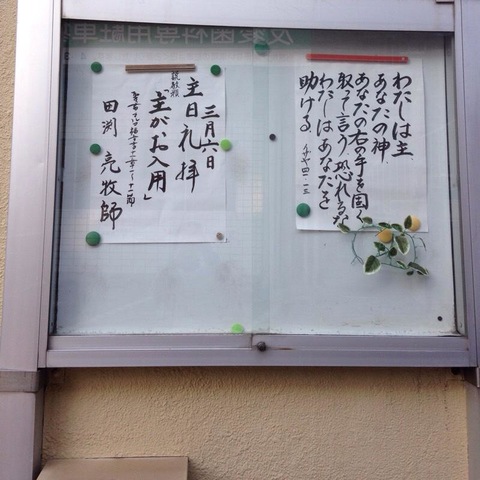 わたしは主
あなたの神
あなたの右の手を固く
取って言う恐れるな
わたしはあなたを
助ける イザヤ四一・一三
三月六日
主日礼拝
説教題
「主がお入用」
聖書マルコ福音書十一章一〜十一節
田渕 亮牧師